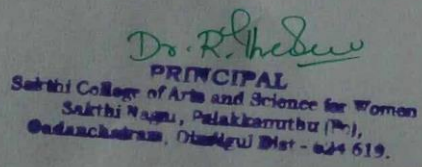 Dr. R.
PRINCIPAL
Sakthi College of Arts and Science for Women
Sakthi Nagar, Palakkanuthu (Po),
Oddanchatram, Dindigul Dist - 624 619.